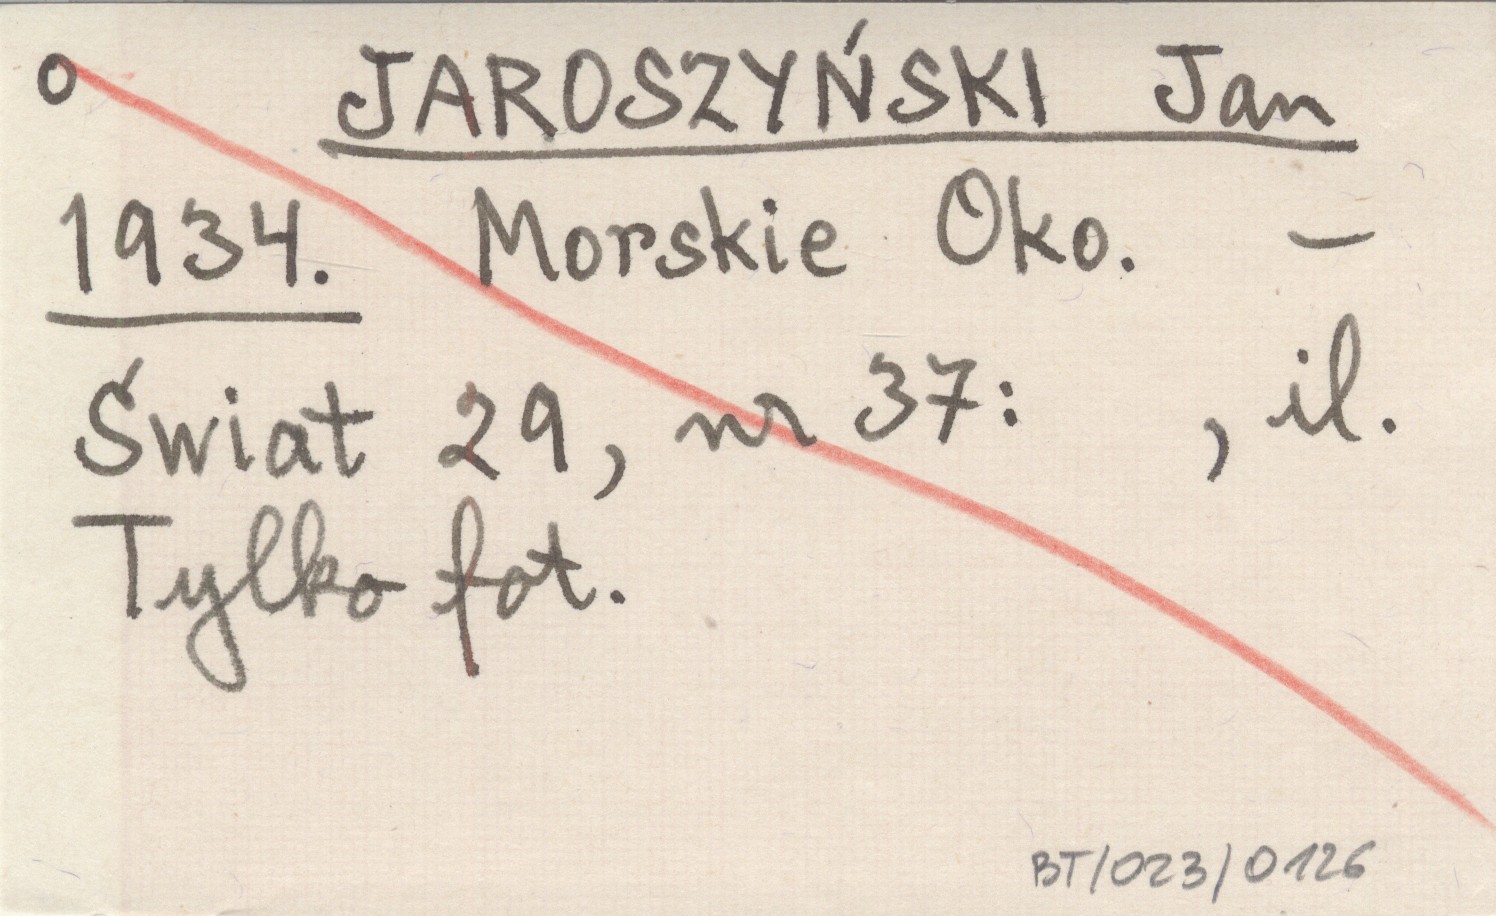 o JAROSZYŃSKI Jan
1934. Morskie Oko. –
Świat 29, nr 37: , il.
Tylko fot.
BT/023/0126